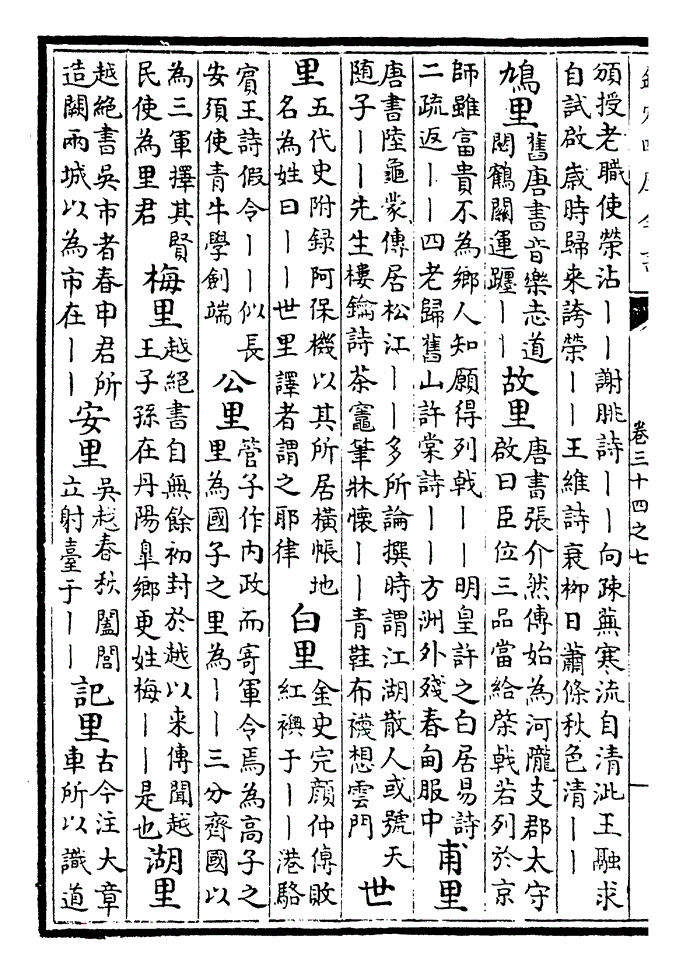 卷三十四之七
頒授老職使榮沾丨丨謝朓詩丨丨向疎蕪寒流自清泚王融求
自試啟歲時歸來誇榮丨丨王維詩衰柳日蕭條秋色清丨丨
鳩里
舊唐書音樂志道
閟鶴關運躔丨丨
故里
唐書張介然傳始為河隴支郡太守
啟曰臣位三品當給棨戟若列於京
師雖富貴不為鄉人知願得列戟丨丨明皇許之白居易詩
二疏返丨丨四老歸舊山許棠詩丨丨方洲外殘春甸服中
甫里
唐書陸龜蒙傳居松江丨丨多所論撰時謂江湖散人或號天
随子丨丨先生樓鑰詩茶竈筆牀懷丨丨青鞋布襪想雲門
世
里
五代史附録阿保機以其所居橫帳地
名為姓曰丨丨世里譯者謂之耶律
白里
金史完顏仲傅敗
紅襖于丨丨港駱
賓王詩假令丨丨似長
安須使青牛學劍端
公里
管子作内政而寄軍令焉為高子之
里為國子之里為丨丨三分齊國以
為三軍擇其賢
民使為里君
梅里
越絶書自無餘初封於越以來傳聞越
王子孫在丹陽臯鄉更姓梅丨丨是也
湖里
越絶書吳市者春申君所
造闕兩城以為市在丨丨
安里
吳越春秋闔閭
立射臺于丨丨
記里
古今注大章
車所以識道